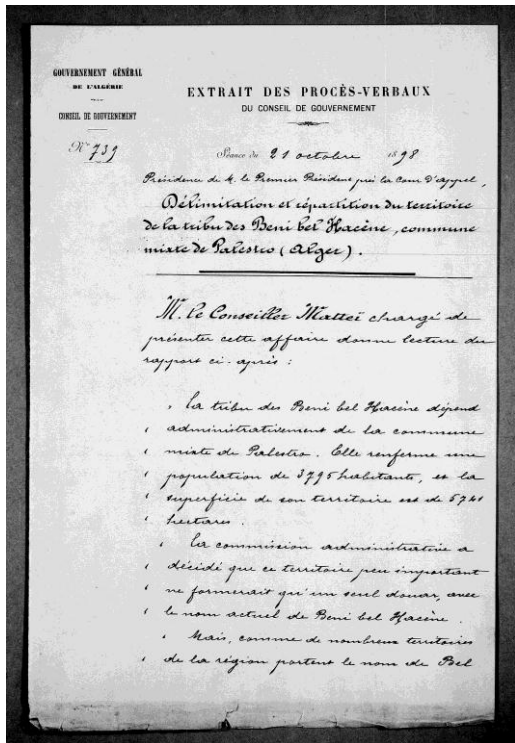 GOUVERNEMENT GÉNÉRAL
DE L'ALGÉRIE
CONSEIL DE GOUVERNEMENT
N° 739
EXTRAIT DES PROCÈS-VERBAUX
DU CONSEIL DE GOUVERNEMENT
Séance du 21 octobre 1898
Présidence de M. le Premier Président près la Cour d'appel,
Délimitation et répartition du territoire
de la tribu des Beni bel Hacène, commune
mixte de Palestro (Alger).
M. le Conseiller Matteï chargé de
présenter cette affaire donne lecture du
rapport ci-après :
" La tribu des Beni bel Hacène dépend
" administrativement de la commune
" mixte de Palestro. Elle renferme une
" population de 3795 habitants, et la
" superficie de son territoire est de 5741
" hectares.
" La commission administrative a
" décidé que ce territoire peu important
" ne formerait qu'un seul douar, avec
" le nom actuel de Beni bel Hacène.
" Mais, comme de nombreux territoires
" de la région portent le nom de Bel